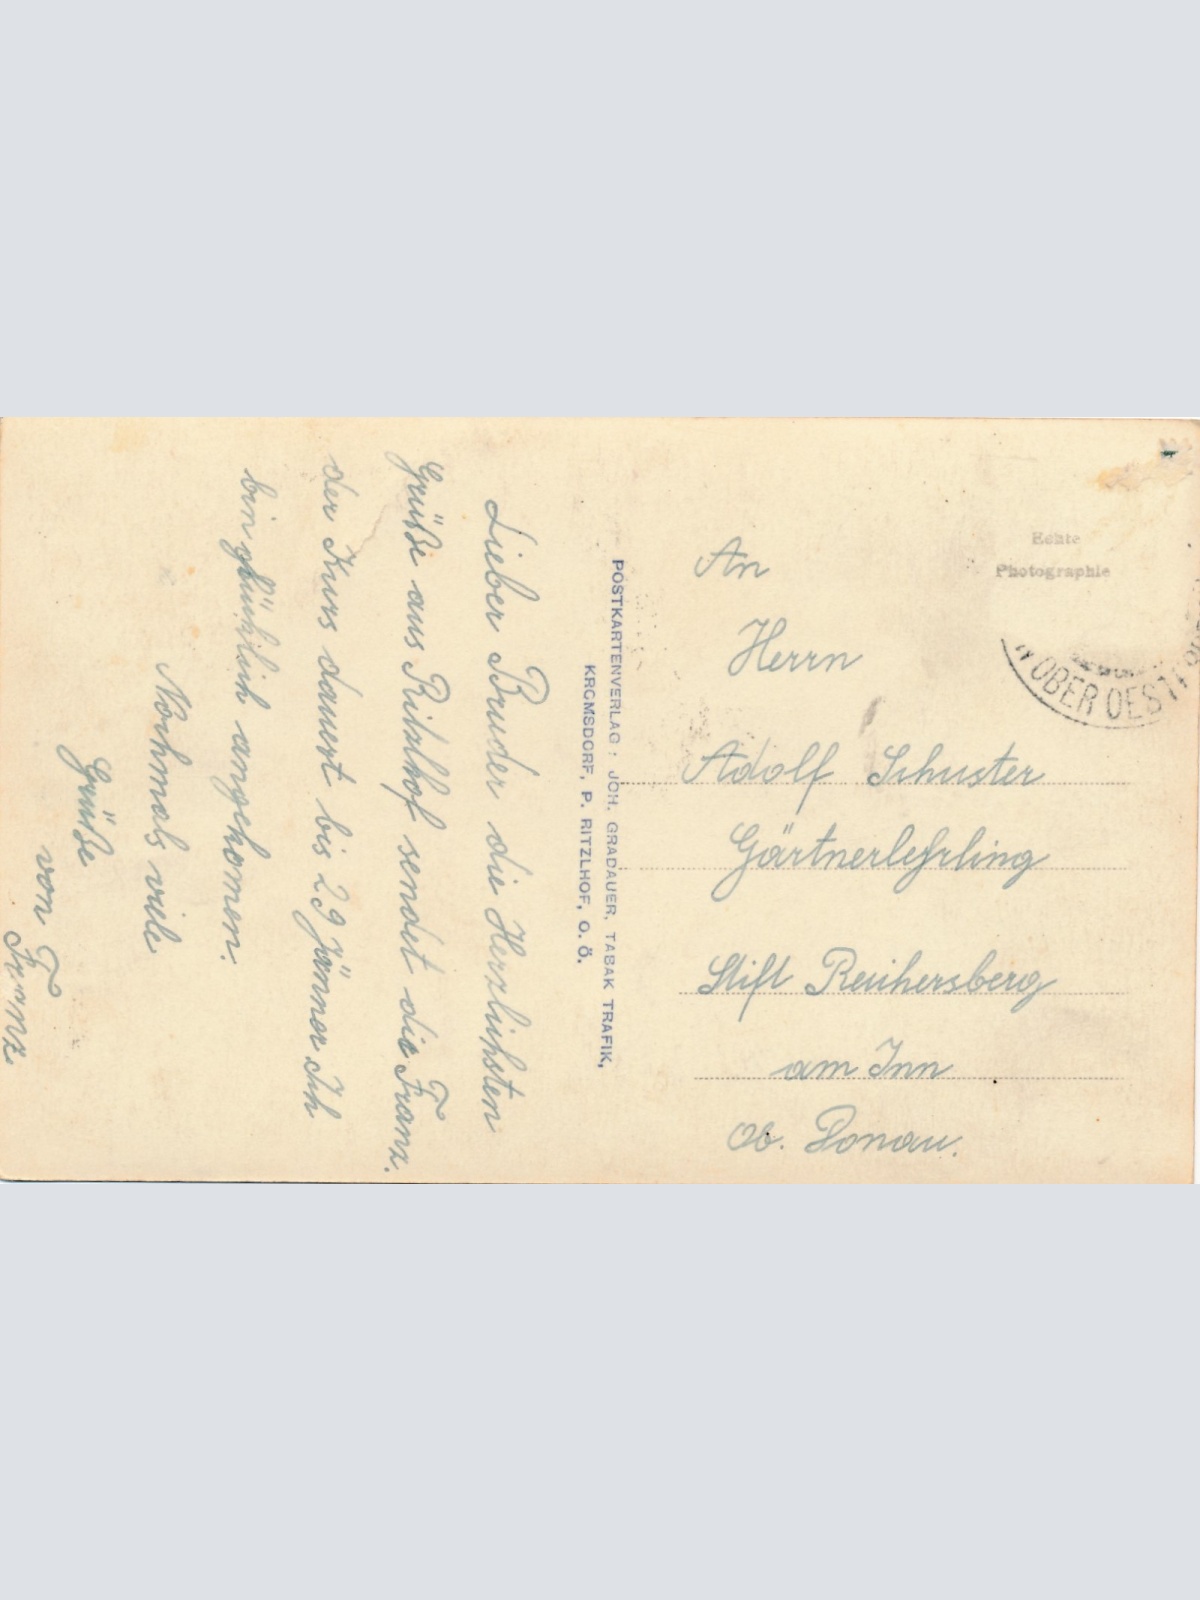 Lieber Bruder die Herzlichsten
Grüße aus Ritzlhof sendet die Franz.
der Kurs dauert bis 29 Jänner Ich
bin glücklich angekomen.
Nochmals viele
Grüße
von
Franz
POSTKARTENVERLAG: JOH. GRADAUER, TABAK TRAFIK,
KROMSDORF, P. RITZLHOF, O.Ö.
Echte
Photographie
OBEROEST
An
Herrn
Adolf Schuster
Gärtnerlehrling
Stift Reichersberg
am Inn
Ob. Donau.